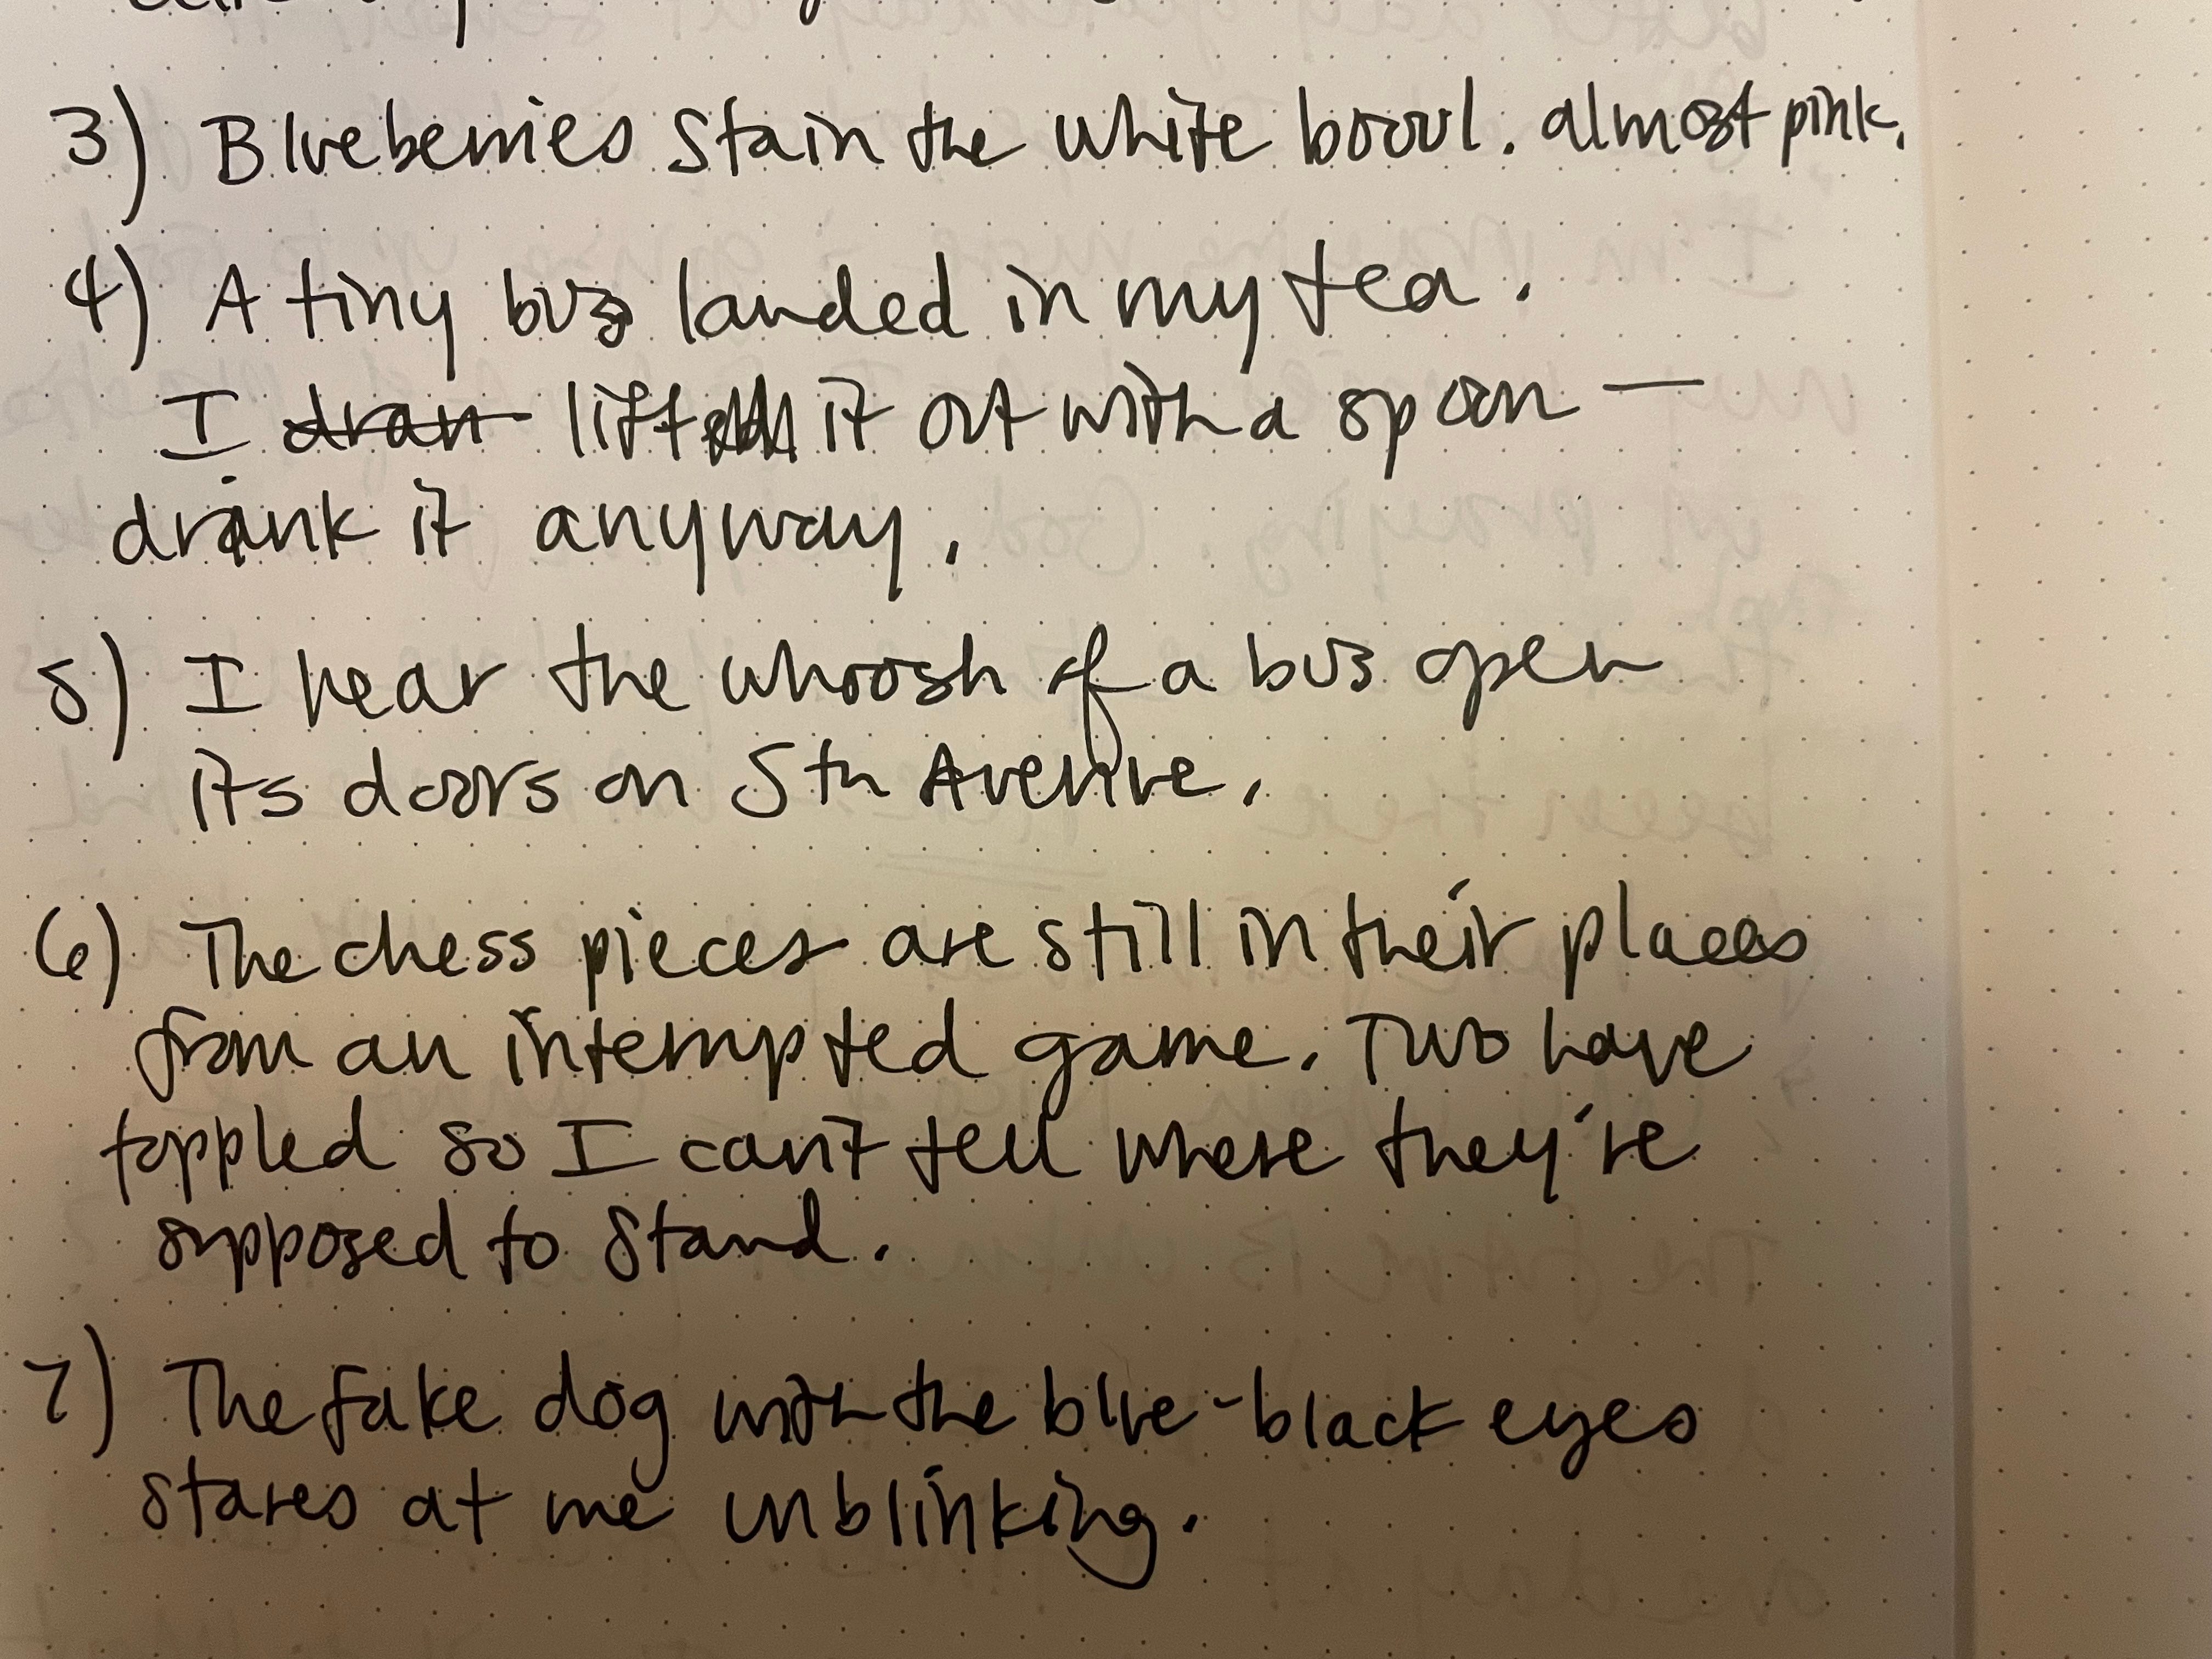 3) Blueberries stain the white bowl. almost pink.
4) A tiny bug landed in my tea.
I dran lift it out with a spoon —
drink it anyway.
5) I hear the whoosh of a bus open
its doors on 5th Avenue.
6) The chess pieces are still in their places
from an interrupted game. Two have
toppled so I can't tell where they're
supposed to stand.
7) The fake dog with the blue-black eyes
stares at me unblinking.